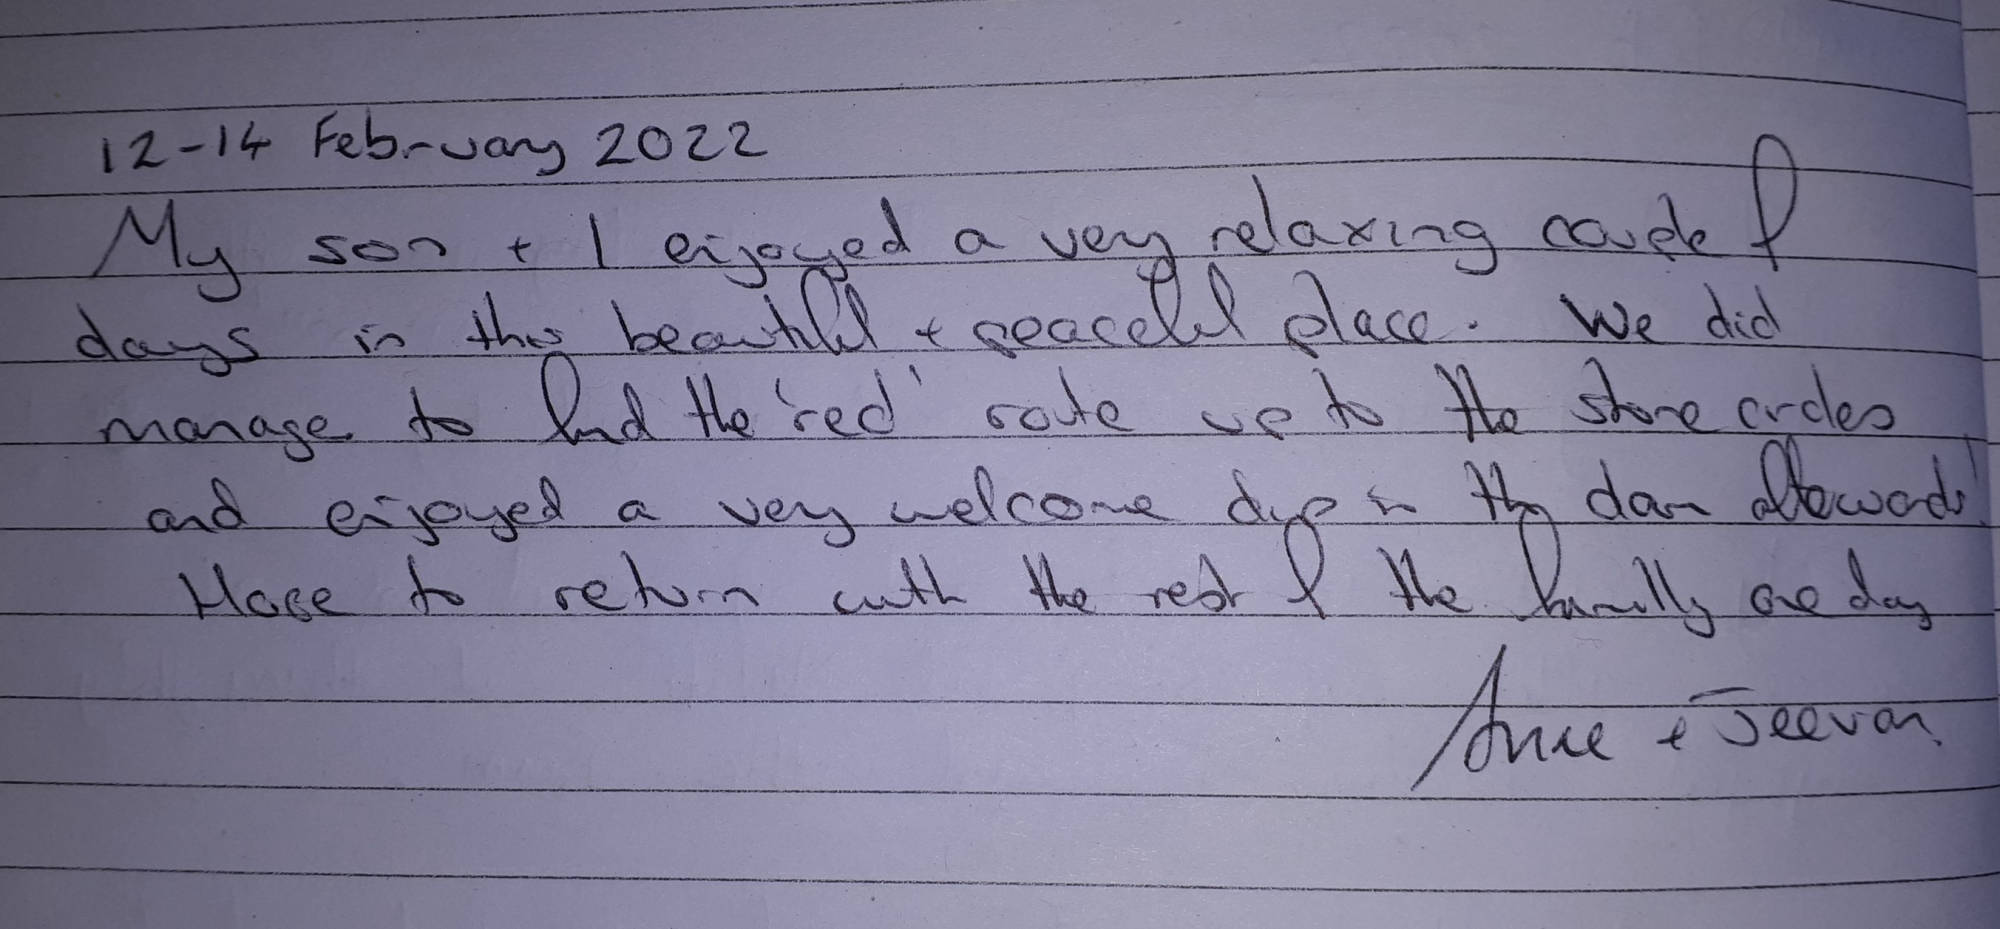 12-14 February 2022
My son + I enjoyed a very relaxing couple of
days in this beautiful + peaceful place. We did
manage to find the 'red' route up to the stone circles
and enjoyed a very welcome dip in the dam afterwards!
Hope to return with the rest of the family one day
Anne + Jeevan.